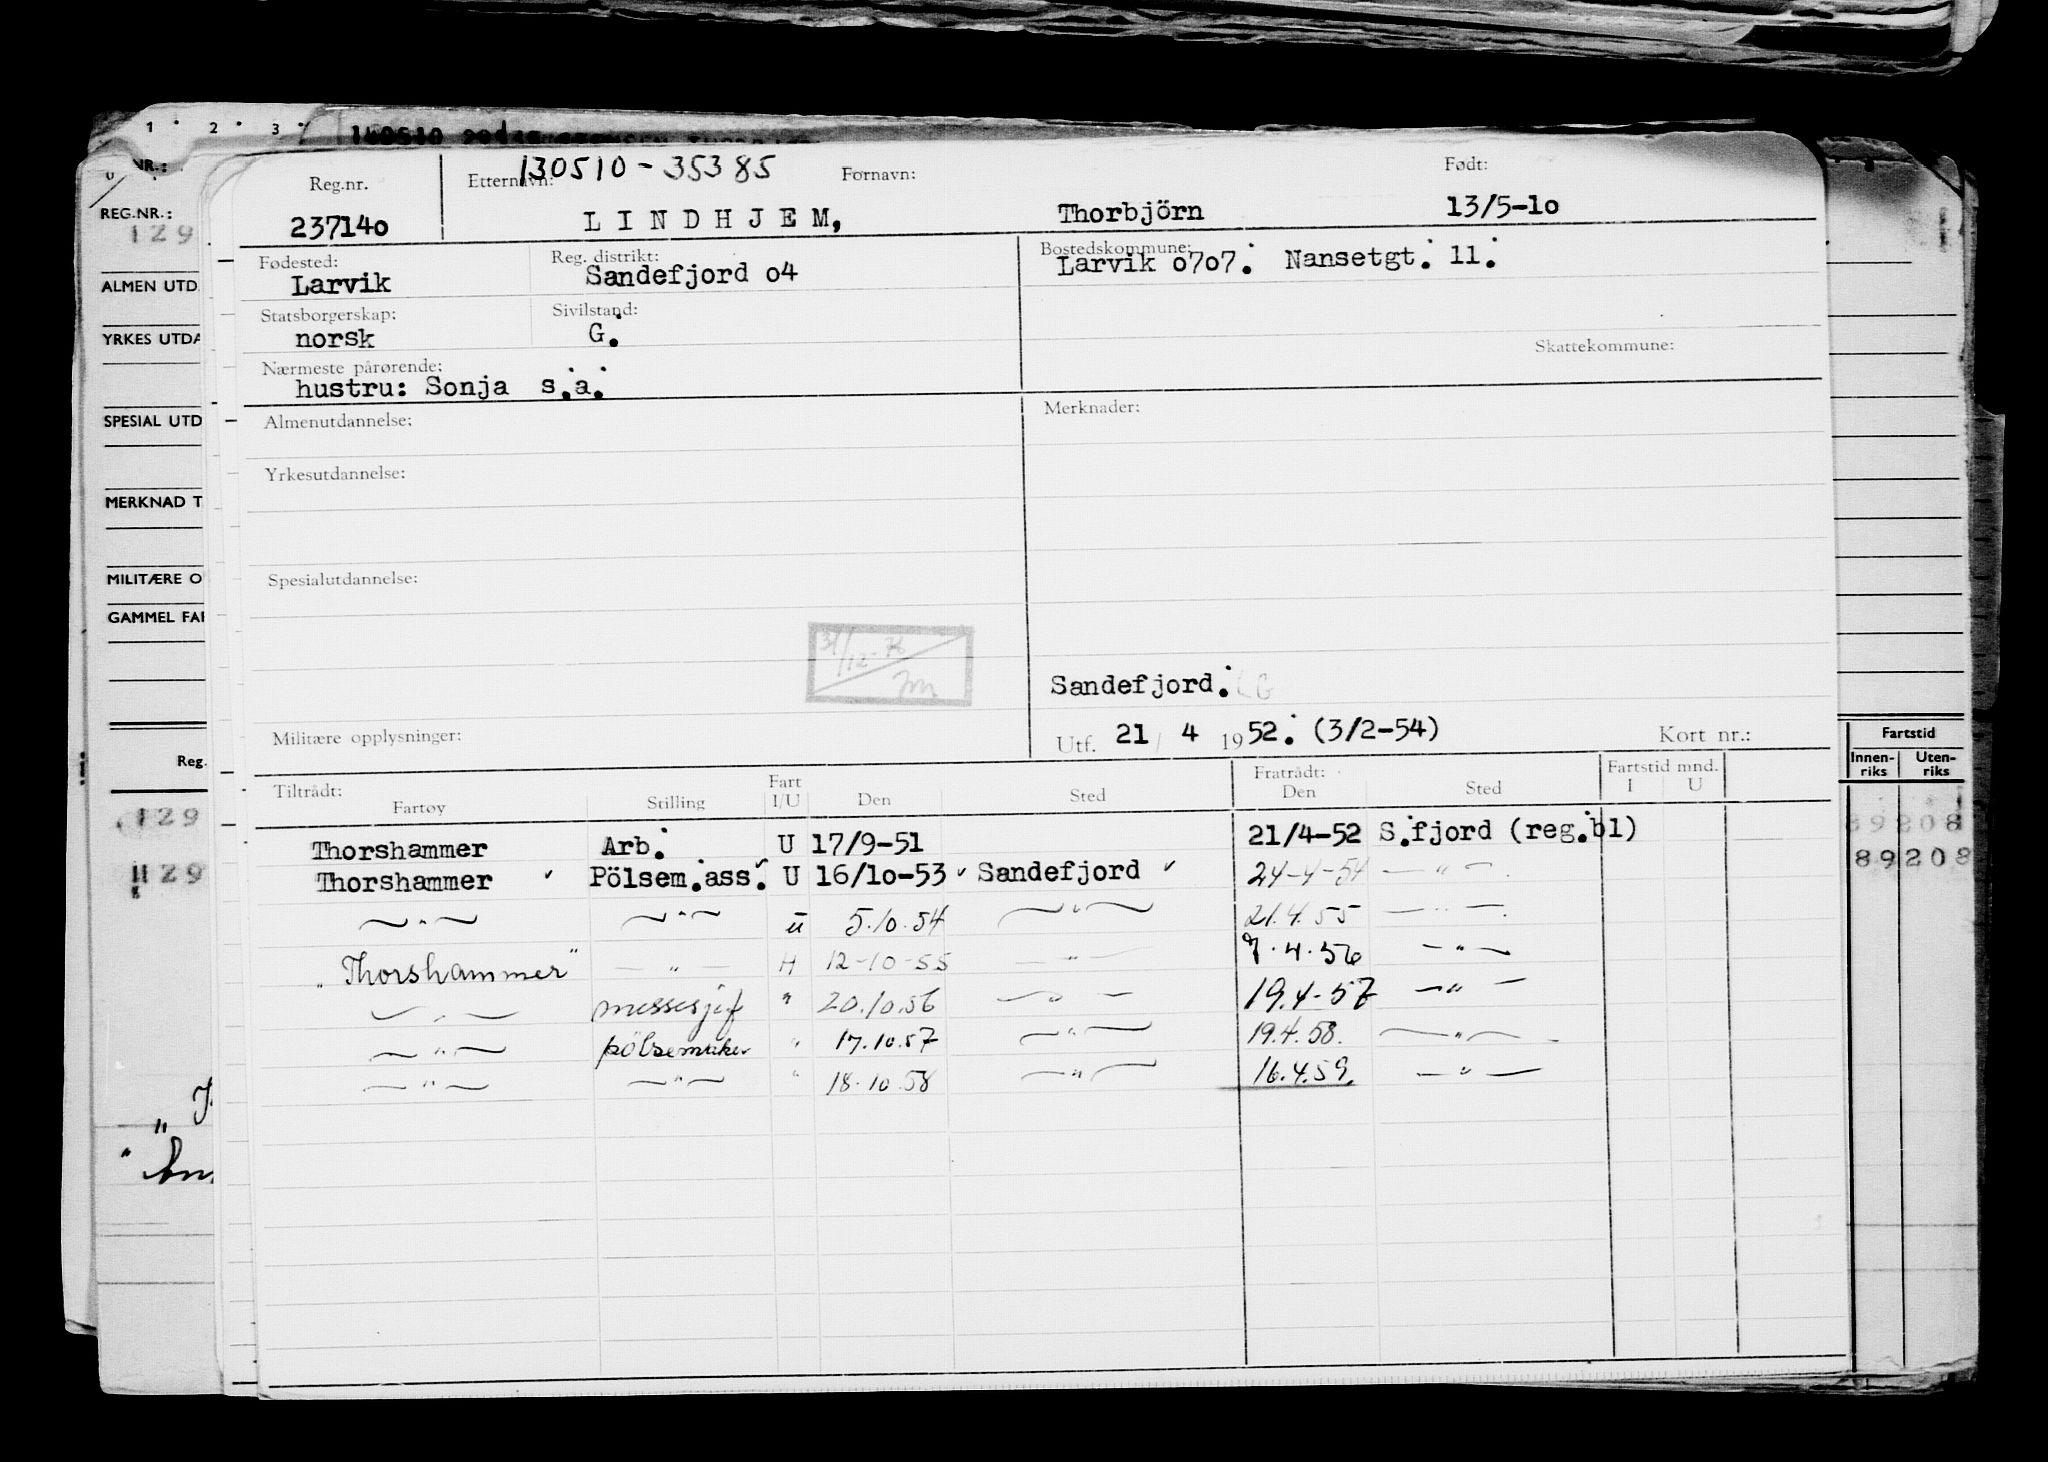 1 · 2 · 3 ·
NR.:
REG.NR.:
129
ALMEN UTD
YRKES UTDA
SPESIAL UTD
MERKNAD T
MILITÆRE O
GAMMEL FAR
Reg.
129
129
130510-35385
Reg.nr. Etternavn: Fornavn: Født:
237140 LINDHJEM, Thorbjörn 13/5-1o
Fødested: Reg. distrikt: Bostedskommune:
Larvik Sandefjord o4 Larvik o7o7. Nansetgt. 11.
Statsborgerskap: Sivilstand:
norsk G.
Skattekommune:
Nærmeste pårørende:
hustru: Sonja s.a.
Almenutdannelse: Merknader:
Yrkesutdannelse:
Spesialutdannelse:
31/12-76
Sandefjord.
Militære opplysninger: Utf. 21 / 4 1952. (3/2-54) Kort nr.:
Tiltrådt: Fart Fratrådt: Fartstid mnd.
Fartøy Stilling I/U Den Sted Den Sted I U
Thorshammer Arb. U 17/9-51 21/4-52 S.fjord (reg.bl)
Thorshammer Pölsem.ass. U 16/1o-53 Sandefjord 24-4-54 — " —
— " — — " — u 5.10.54 — " — 21.4.55 — " —
"Thorshammer" — " — H 12-10-55 — " — 7.4.56 — " —
— " — messesjef " 20.10.56 — " — 19.4-57 — " —
— " — pölsemaker " 17.10.57 — " — 19.4.58. — " —
— " — — " — " 18.10.58 — " — 16.4.59. — " —
Fartstid
Innen-riks Uten-riks
89 208
89 208